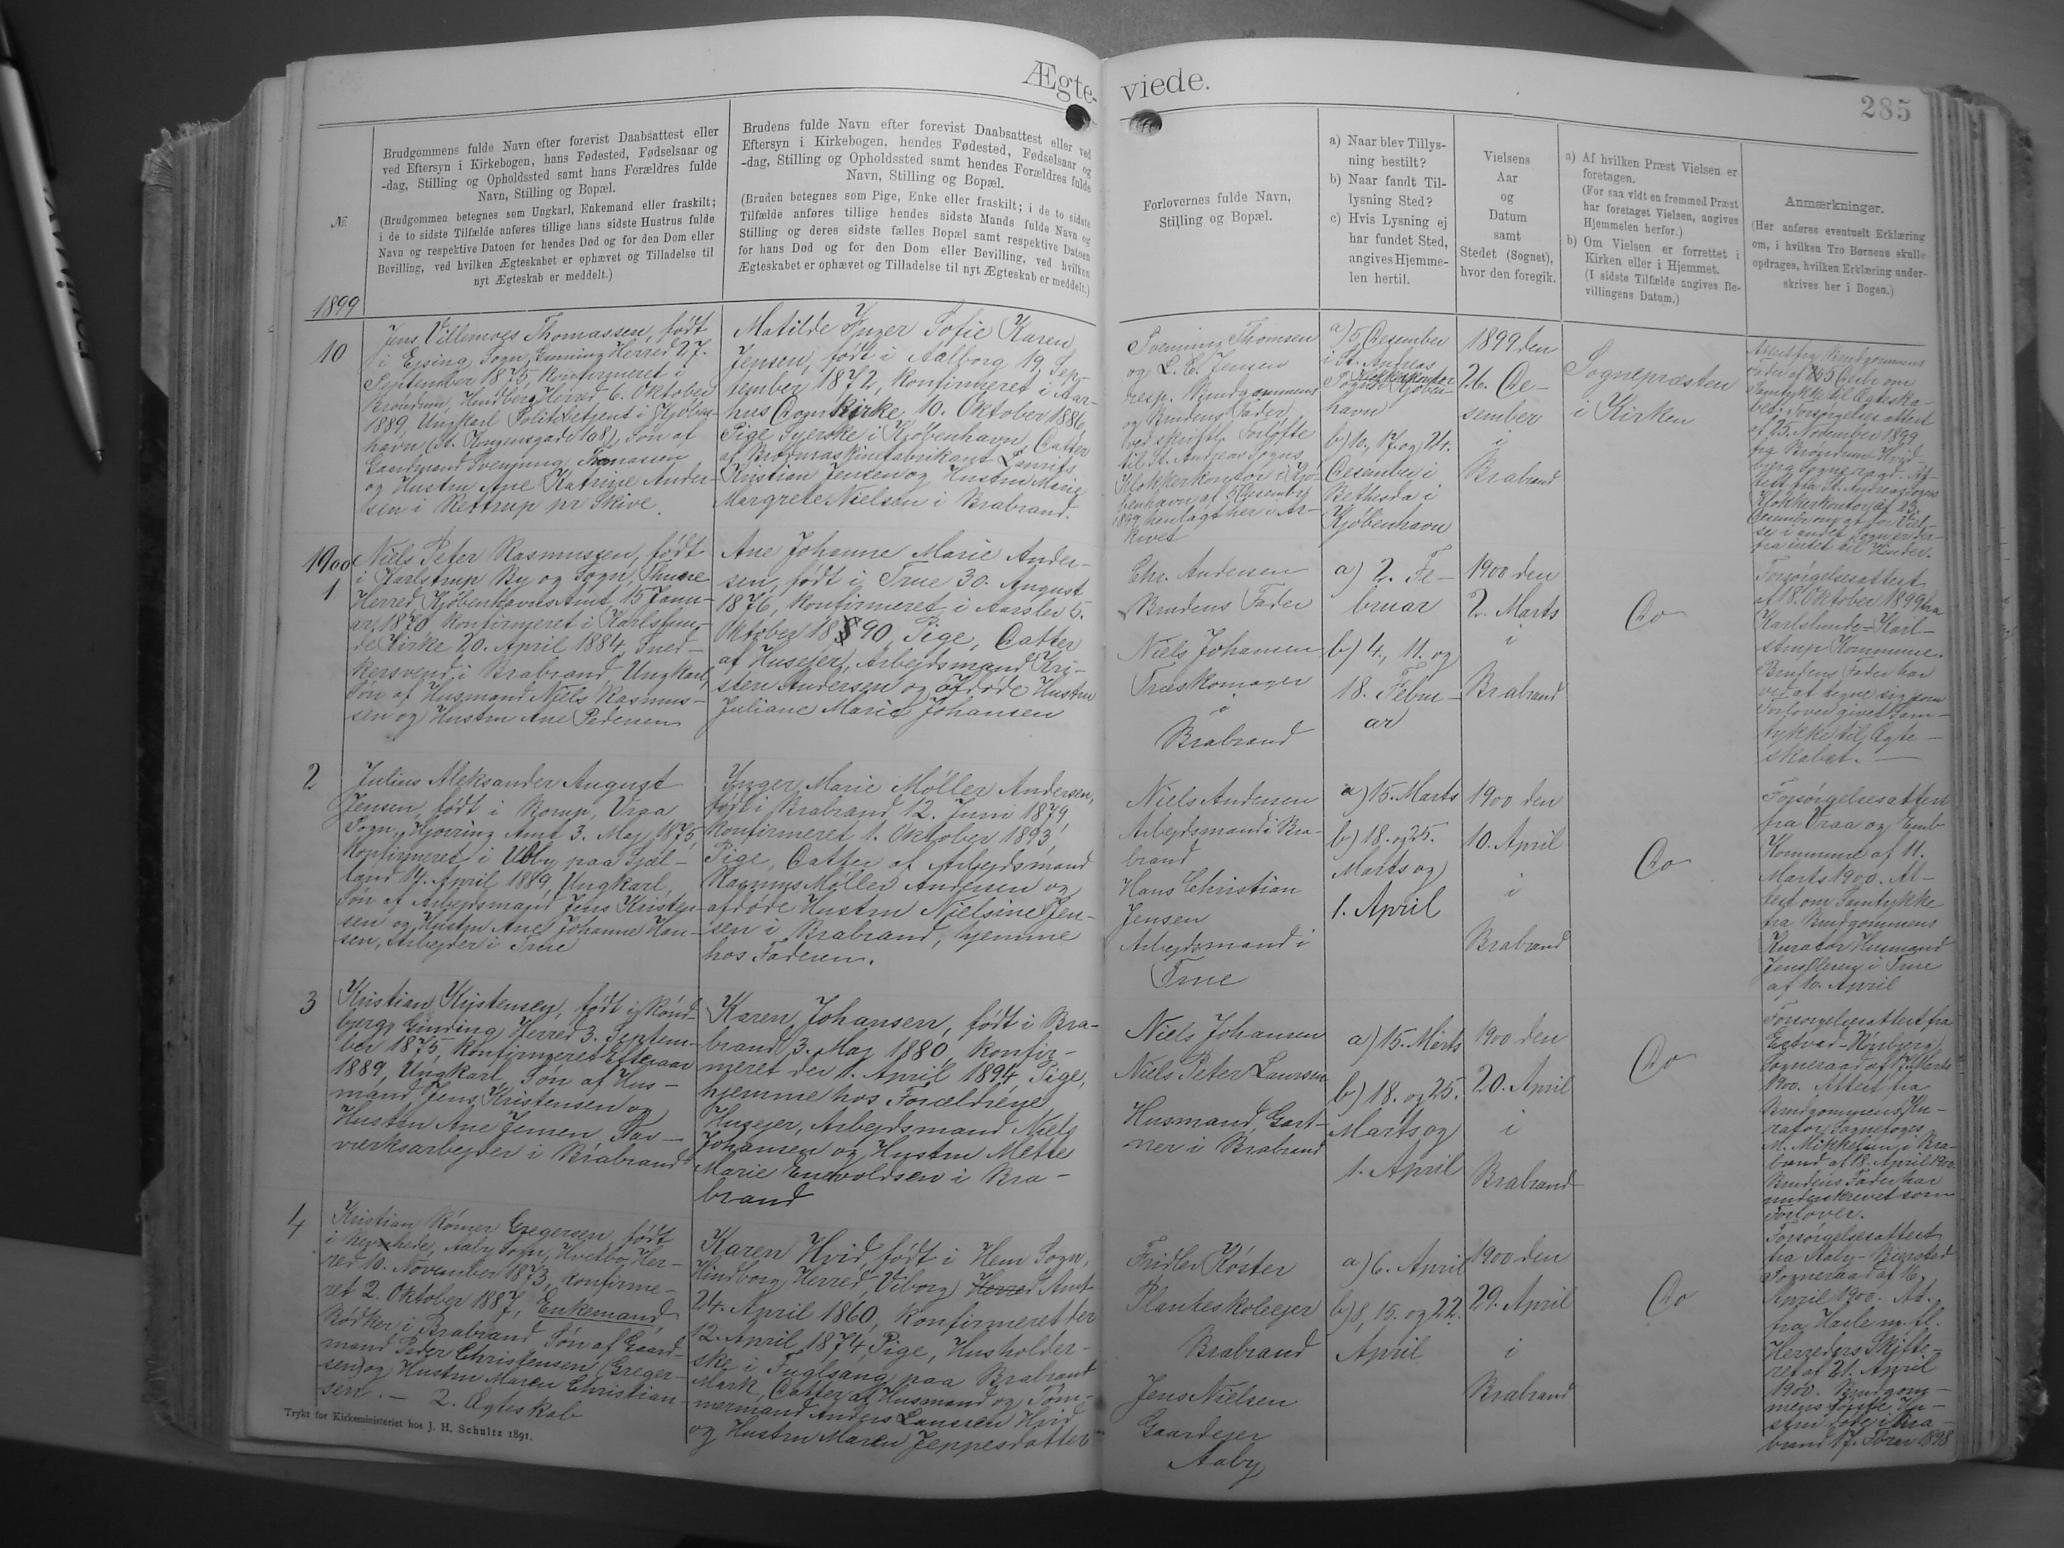 Ægte-
viede.
285
№
Brudgommens fulde Navn efter forevist Daabsattest eller
ved Eftersyn i Kirkebogen, hans Fødested, Fødselsaar og
-dag, Stilling og Opholdssted samt hans Forældres fulde
Navn, Stilling og Bopæl.
(Brudgommen betegnes som Ungkarl, Enkemand eller fraskilt;
i de to sidste Tilfælde anføres tillige hans sidste Hustrus fulde
Navn og respektive Datoen for hendes Død og for den Dom eller
Bevilling, ved hvilken Ægteskabet er ophævet og Tilladelse til
nyt Ægteskab er meddelt.)
Brudens fulde Navn efter forevist Daabsattest eller ved
Eftersyn i Kirkebogen, hendes Fødested, Fødselsaar og
-dag, Stilling og Opholdssted samt hendes Forældres fulde
Navn, Stilling og Bopæl.
(Bruden betegnes som Pige, Enke eller fraskilt; i de to sidste
Tilfælde anføres tillige hendes sidste Mands fulde Navn og
Stilling og deres sidste fælles Bopæl samt respektive Datoen
for hans Død og for den Dom eller Bevilling, ved hvilken
Ægteskabet er ophævet og Tilladelse til nyt Ægteskab er meddelt.)
Forlovernes fulde Navn,
Stilling og Bopæl.
a) Naar blev Tillys-
ning bestilt?
b) Naar fandt Til-
lysning Sted?
c) Hvis Lysning ej
har fundet Sted,
angives Hjemme-
len hertil.
Vielsens
Aar
og
Datum
samt
Stedet (Sognet),
hvor den foregik.
a) Af hvilken Præst Vielsen er
foretagen.
(For saa vidt en fremmed Præst
har foretaget Vielsen, angives
Hjemmelen herfor.)
b) Om Vielsen er forrettet i
Kirken eller i Hjemmet.
(I sidste Tilfælde angives Be-
villingens Datum.)
Anmærkninger.
(Her anføres eventuelt Erklæring
om, i hvilken Tro Børnene skulle
opdrages, hvilken Erklæring under-
skrives her i Bogen.)
1899
10
Jens Villemoes Thomassen, født
i Ejsing Sogn, Ginning Herred 27.
September 1875, konfirmeret i
Brøndum, Hindborg Herred 6. Oktober
1889, Ungkarl Politibetjent i Kjøben-
havn (St. Kongensgade 108), Søn af
Landmand Svenning Thomassen
og Hustru Ane Katrine Ander-
sen i Rettrup pr Skive.
Matilde Inger Sofie Karen
Jensen, født i Aalborg 19. Sep-
tember 1872, konfirmeret i Aar-
hus Domkirke 10. Oktober 1886,
Pige Syerske i Kjøbenhavn, Datter
af Brødmaskinefabrikant Laurits
Kristian Jensen og Hustru Marie
Margrete Nielsen i Brabrand.
Svenning Thomsen
og L. C. Jensen
resp. Brudgommens
og Brudens Fader
ved skriftl. Forløfte
til St. Andreas Sogns
Klokkerkontor i Kjø-
benhavn af 5 December
1899 henlagt her i Ar-
kivet
a) 5 December
i St. Andreas
Sogn Kjøben-
havn
b) 10., 17. og 24.
December i
Bethesda i
Kjøbenhavn
1899 den
26. De-
sember
i
Brabrand
Sognepræsten
i Kirken
Attest fra Brudgommens
Samtykke til Ægteska-
bet, Forsørgelsesattest
af 25. November 1899
fra Brøndum Hvid-
bjerg Sogneraad. At-
test fra St. Andreas Sogns
Klokkerkontor af 23.
December om at for Viel-
se i andet Sogn er der-
fra intet til Hinder.
1900
1
Niels Peter Rasmussen, født
i Karlstrup By og Sogn, Thune
Herred, Kjøbenhavns Amt, 15 Janu-
ar 1870 konfirmeret i Karlslun-
de Kirke 20. April 1884, Sned-
kersvend i Brabrand, Ungkarl,
Søn af Husmand Niels Rasmus-
sen og Hustru Ane Pedersen
Ane Johanne Marie Ander-
sen, født i True 30. August
1876, konfirmeret i Aarslev 5.
Oktober 1890, Pige, Datter
af Husejer, Arbejdsmand Kri-
sten Andersen og afdøde Hustru
Juliane Marie Johansen
Chr. Andersen
Brudens Fader
Niels Johansen
Træskomager
i
Brabrand
a) 2. Fe-
bruar
b) 4., 11. og
18. Febru-
ar
1900 den
2. Marts
i
Brabrand
Do
Forsørgelsesattest
af 18. Oktober 1899 fra
Karlslunde-Karl-
strup Kommune.
Brudens Fader har
ved at tegne sig som
Forlover givet Sam-
tykke til Ægte-
skabet.
2
Julius Aleksander August
Jensen, født i Borup, Vraa
Sogn, Hjørring Amt 3. Maj 1875,
konfirmeret i Udby paa Sjæl-
land 14. April 1889, Ungkarl,
Søn af Arbejdsmand Jens Kristen-
sen og Hustru Ane Johanne Han-
sen, Arbejder i True
Inger Marie Møller Andersen,
født i Brabrand 12. Juni 1879,
konfirmeret 1. Oktober 1893,
Pige, Datter af Arbejdsmand
Rasmus Møller Andersen og
afdøde Hustru Nielsine Jen-
sen i Brabrand, hjemme
hos Faderen.
Niels Andersen
Arbejdsmand i Bra-
brand
Hans Christian
Jensen
Arbejdsmand i
True
a) 15. Marts
b) 18. og 25.
Marts og
1. April
1900 den
10. April
i
Brabrand
Do
Forsørgelsesattest
fra Vraa og Emb
Kommune af 11.
Marts 1900. At-
test om Samtykke
fra Brudgommens
Kurator Husmand
Jens Olesen i True
af 10. April
3
Kristian Kristensen, født i Rønd-
bjerg Ginding Herred 3. Septem-
ber 1875, konfirmeret Efteraar
1889, Ungkarl, Søn af Hus-
mand Jens Kristensen og
Hustru Ane Jensen, Tør-
værksarbejder i Brabrand
Karen Johansen, født i Bra-
brand 3. Maj 1880, konfir-
meret den 1. April 1894, Pige,
hjemme hos Forældrene
Husejer, Arbejdsmand Niels
Johansen og Hustru Mette
Marie Envoldsen i Bra-
brand
Niels Johansen
Niels Peter Laursen
Husmand, Gart-
ner i Brabrand
a) 15. Marts
b) 18. og 25.
Marts og
1. April
1900 den
20. April
i
Brabrand
Do
Forsørgelsesattest fra
Sogneraad af 17. Marts
1900. Attest fra
Brudgommens Ku-
rator Sognefoged
M. Mikkelsen i Bra-
brand af 18. April 1900.
Brudens Fader har
underskrevet som
Forlover.
4
Kristian Rømer Gregersen, født
hede, Aaby Sogn, Hvetbo Her-
red 10. November 1873, konfirme-
ret 2. Oktober 1887, Enkemand,
Bødker i Brabrand Søn af Gaard-
mand Peder Christensen Greger-
sen og Hustru Maren Christian-
sen. - 2. Ægteskab
Karen Hvid, født i Hem Sogn,
Hindborg Herred, Viborg Herred Amt
24. April 1860, konfirmeret den
12. April 1874, Pige, Husholder-
ske i Fuglsang paa Brabrand
Mark, Datter af Husmand og Tøm-
mermand Anders Laursen Hvid
og Hustru Maren Jeppesdatter
Fridlev Køster
Planteskoleejer
Brabrand
Jens Nielsen
Gaardejer
Aaby
a) 6. April
b) 8, 15. og 22.
April
1900 den
29. April
i
Brabrand
Do
Forsørgelsesattest
fra Aaby-Bjersted
Sogneraad af 16.
April 1900. At.
fra Hasle m. fl.
Herreders Skifte-
ret af 21. April
1900. Brudgom-
mens første Hu-
stru døde i Bra-
brand 17. Febr 1898
Trykt for Kirkeministeriet hos J. H. Schultz 1891.